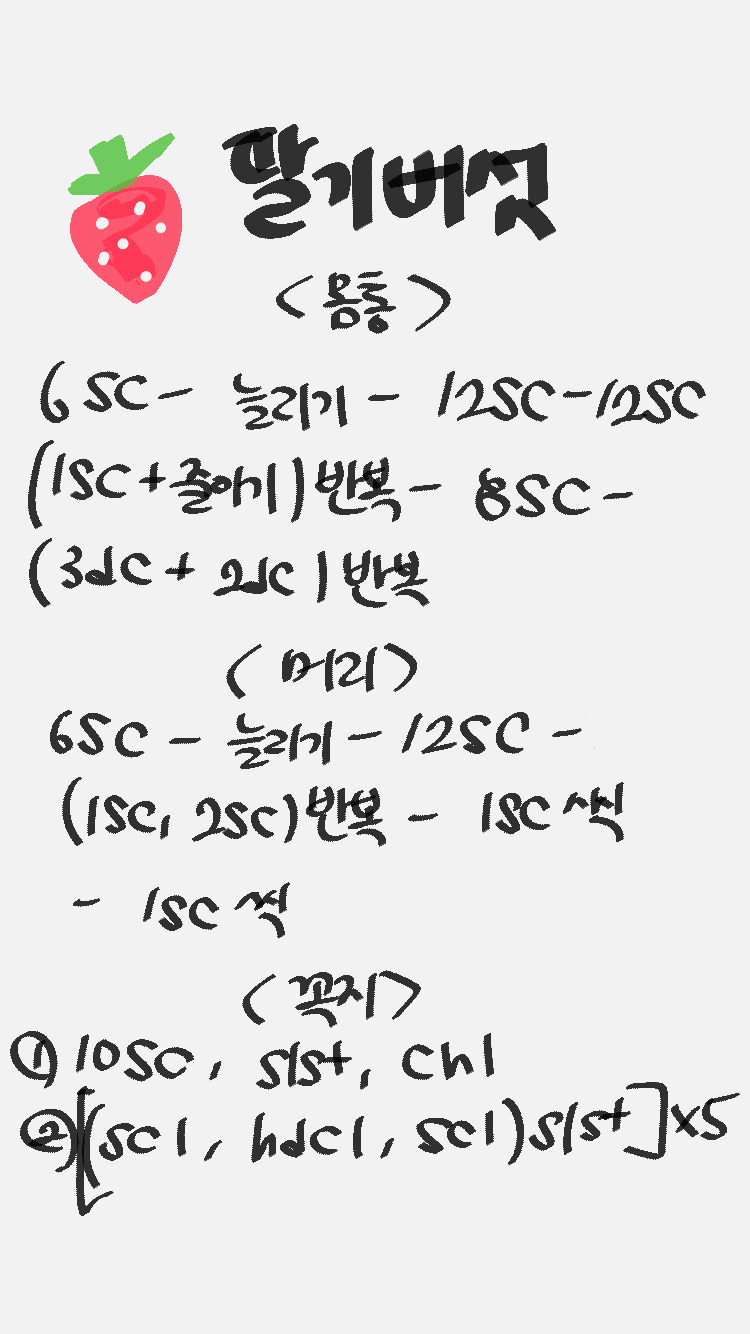 딸기버섯
<몸통>
6 SC - 늘리기 - 12SC - 12SC
(1SC + 줄이기) 반복 - 8SC -
(3dc + 2dc) 반복
<머리>
6SC - 늘리기 - 12SC -
(1SC, 2SC) 반복 - 1SC씩
- 1SC씩
<꼭지>
① 10SC, slst, ch1
② [(SC1, hdc1, SC1) slst] x5